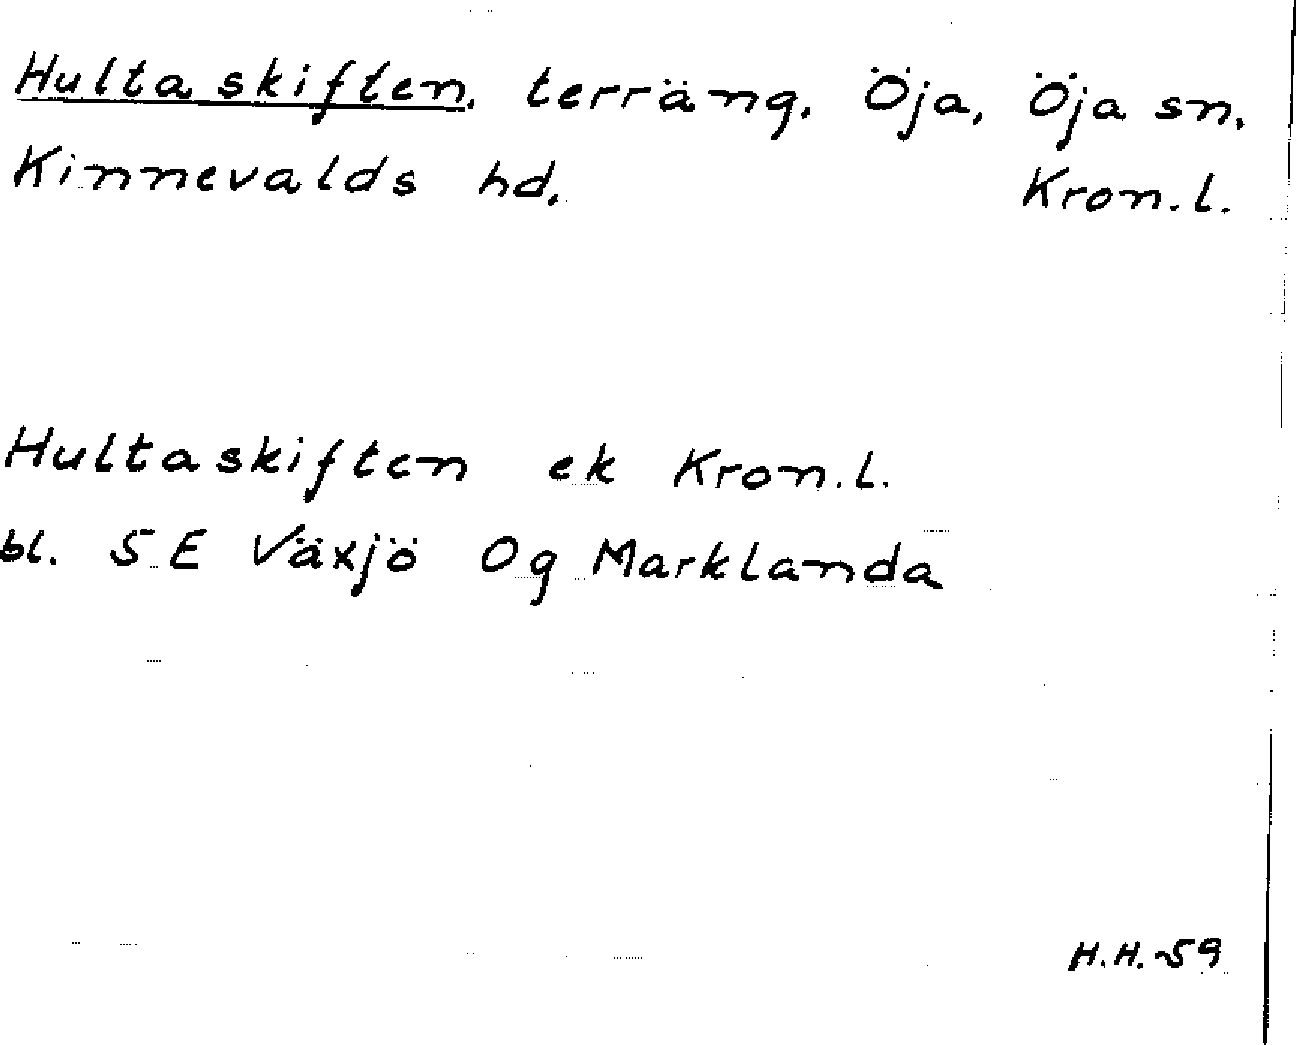 Hultaskiften, terräng, Öja, Öja sn,
Kinnevalds hd, Kron.l.
Hultaskiften ek Kron.l.
bl. SE Växjö Og Marklanda
H.H.-59